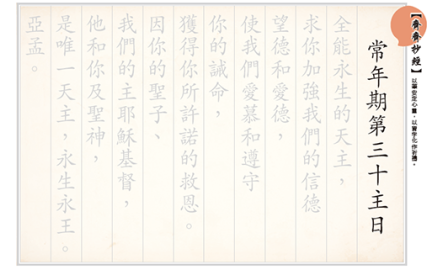 【齊齊抄經】
以筆安定心靈，以寫字化作祈禱。
常年期第三十主日
全能永生的天主，
求你加強我們的信德
望德和愛德，
使我們愛慕和遵守
你的誡命，
獲得你所許諾的救恩。
因你的聖子、
我們的主耶穌基督，
他和你及聖神，
是唯一天主，永生永王。
亞孟。